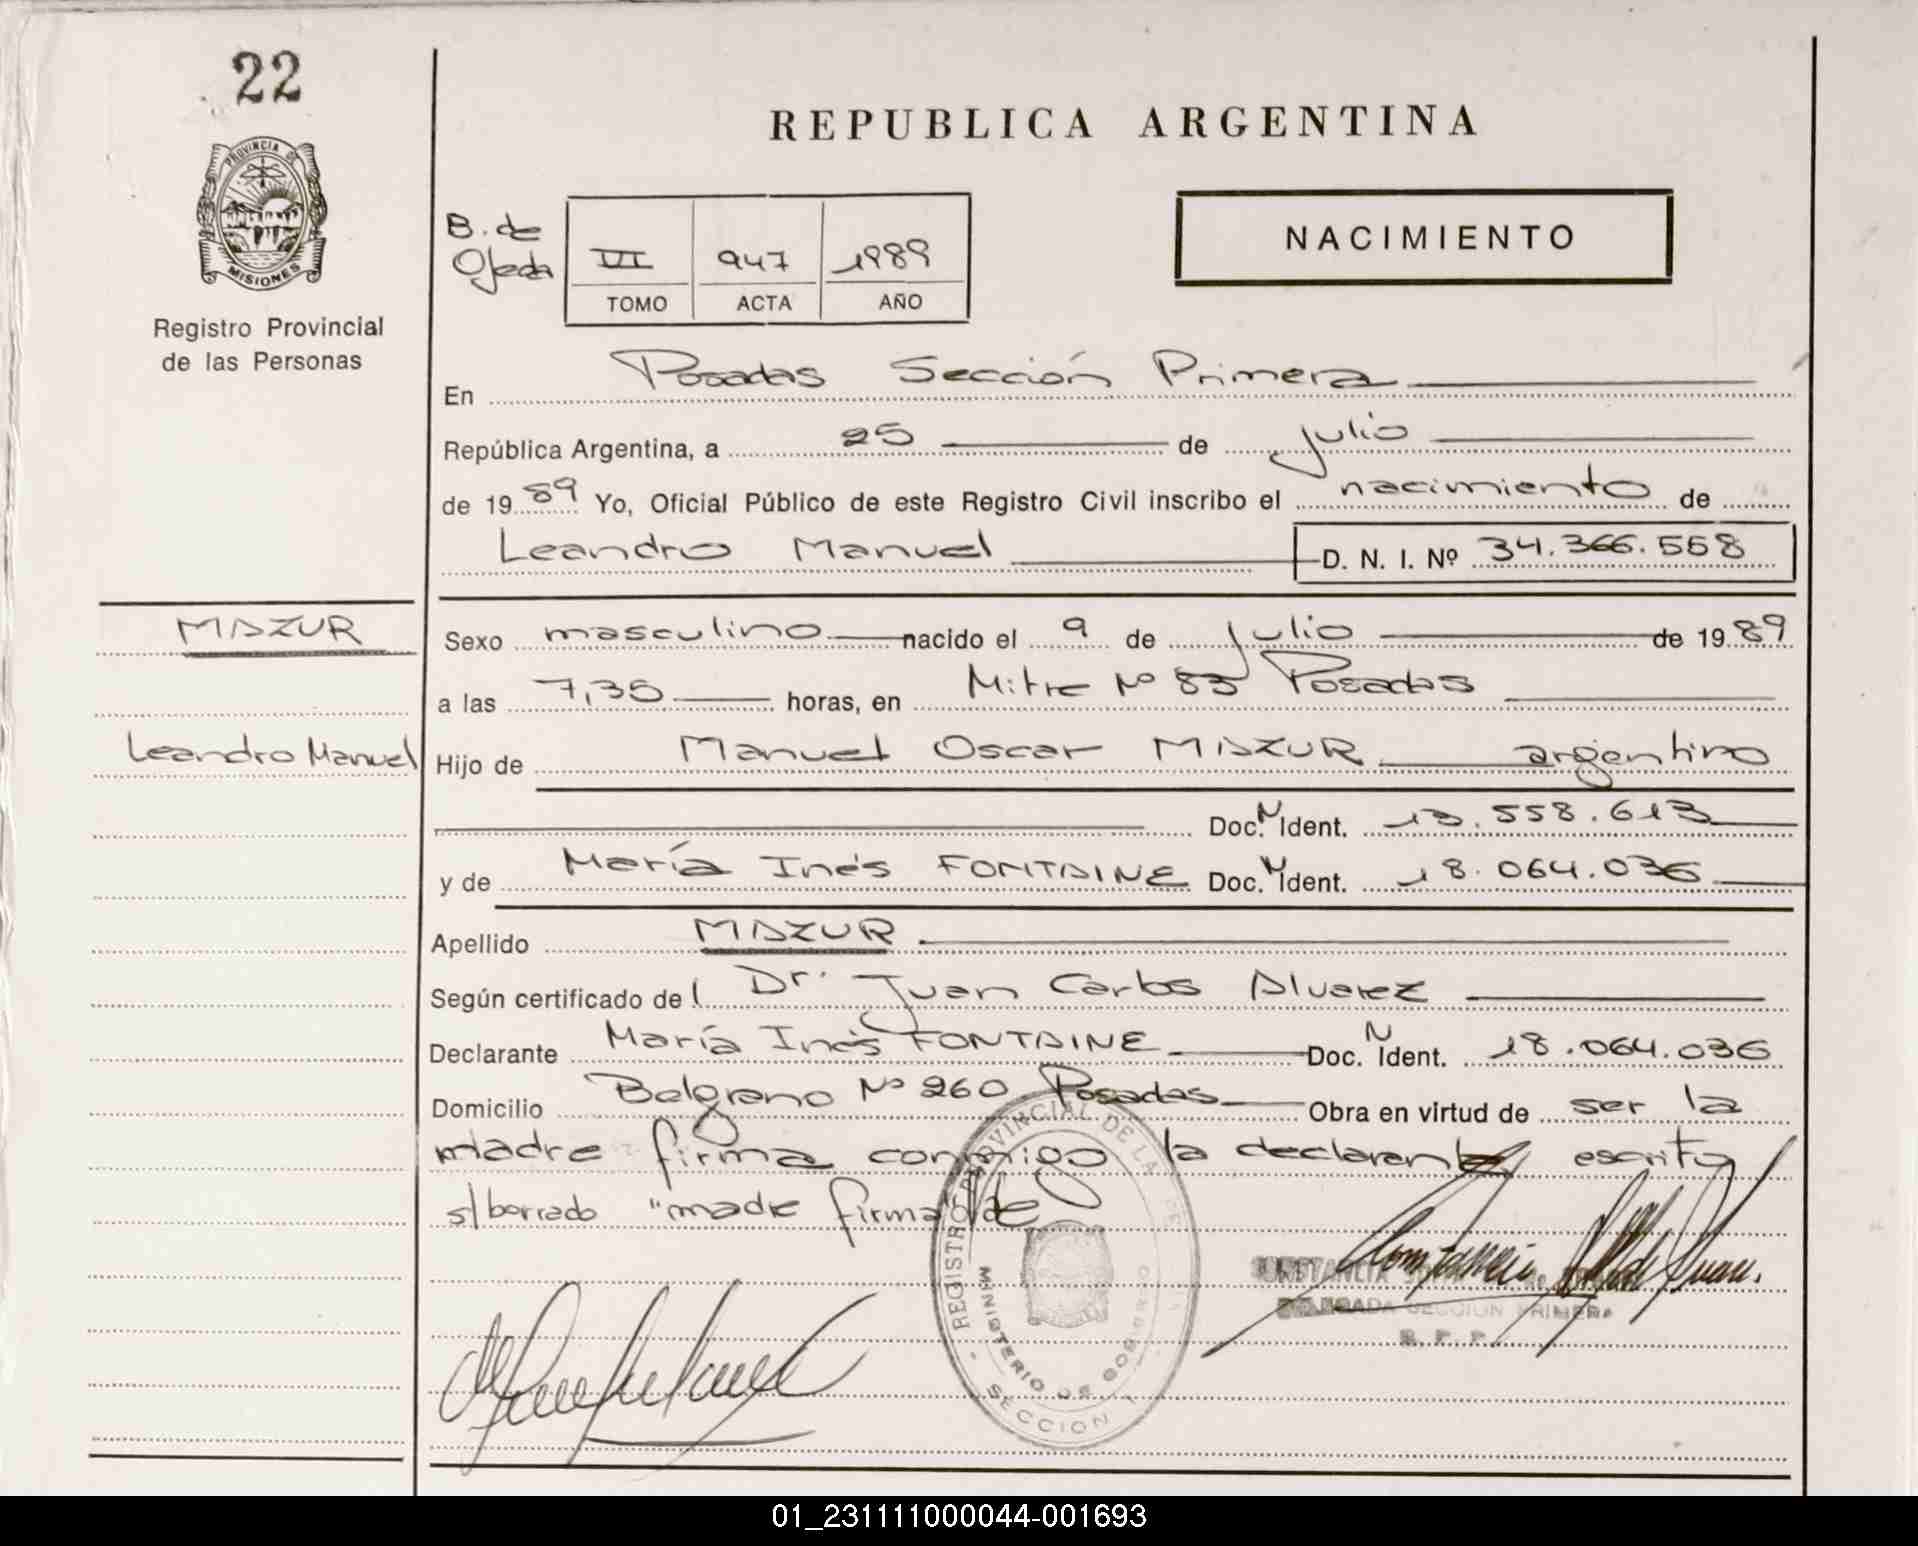 22
REPUBLICA ARGENTINA
PROVINCIA DE
MISIONES
Registro Provincial
de las Personas
B. de
Ojeda
VI 947 1989
TOMO ACTA AÑO
NACIMIENTO
En Posadas Sección Primera
República Argentina, a 25 de julio
de 1989 Yo, Oficial Público de este Registro Civil inscribo el nacimiento de
Leandro Manuel D. N. I. Nº 34.366.558
MAZUR
Sexo masculino nacido el 9 de julio de 1989
a las 7,35 horas, en Mitre Nº 83 Posadas
Leandro Manuel
Hijo de Manuel Oscar MAZUR argentino
Doc. N Ident. 13.558.613
y de María Inés FONTAINE Doc. N Ident. 18.064.036
Apellido MAZUR
Según certificado del Dr. Juan Carlos Alvarez
Declarante María Inés FONTAINE Doc. N Ident. 18.064.036
Domicilio Belgrano Nº 260 Posadas Obra en virtud de ser la
madre firma conmigo la declarante escrito
s/borrado "madre firma" Vale
REGISTRO PROVINCIAL DE LAS
MINISTERIO DE GOBIERNO
SECCION 1
DELEGADA SECCION PRIMERA
R. P. P.
01_231111000044-001693